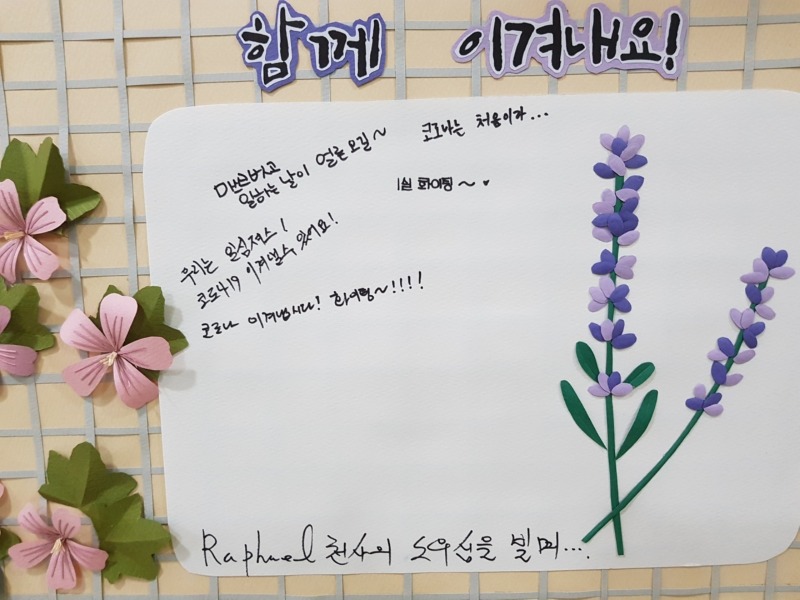 함께 이겨내요!
마스크 벗고
일하는 날이 얼른 오길~
코로나는 처음이라...
1실 화이팅~♥
우리는 원심져스!
코로419 이겨낼수 있어요!
코로나 이겨냅시다! 화이팅~!!!!
Raphael 천사의 도우심을 빌며...